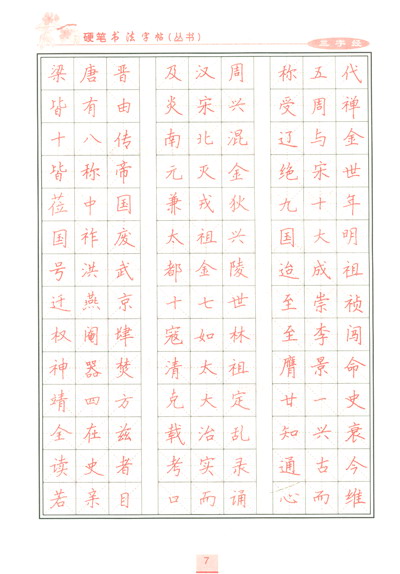 硬笔书法字帖(丛书)
三字经
梁唐晋 及汉周 称五代
皆有由 炎宋兴 受周禅
十八传 南北混 辽与金
皆称帝 元灭金 绝宋世
莅中国 兼戎狄 九十年
国祚废 太祖兴 国大明
号洪武 都金陵 迨成祖
迁燕京 十七世 至崇祯
权阉肆 寇如林 至李闯
神器焚 清太祖 膺景命
靖四方 克大定 廿一史
全在兹 载治乱 知兴衰
读史者 考实录 通古今
若亲目 口而诵 心而维
7